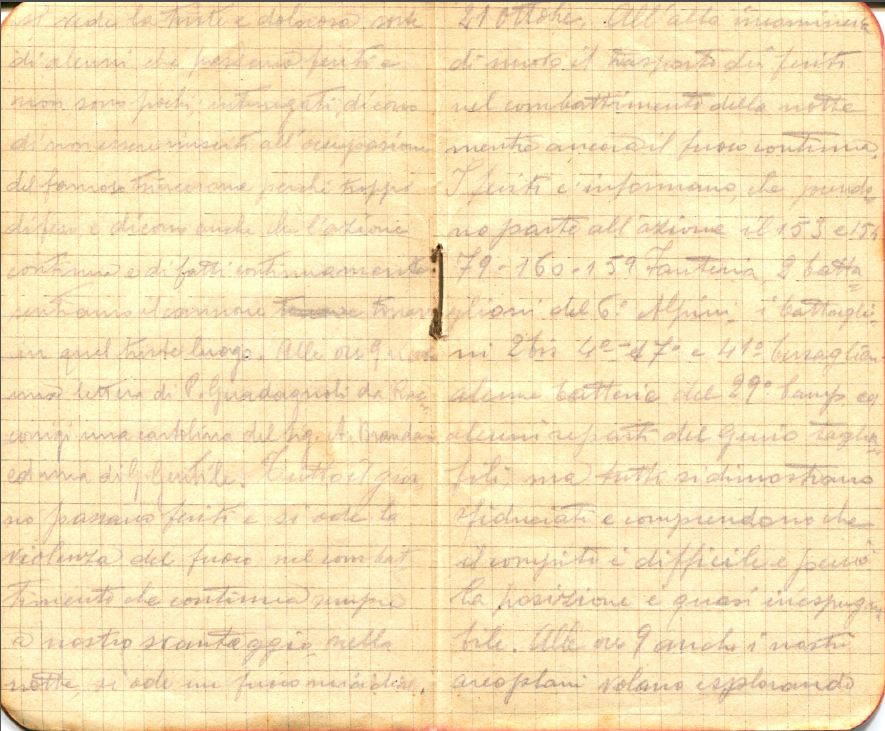 si vede la triste e dolorosa sorte
di alcuni che passano feriti e
non sono pochi; interrogati, dicono
di non essere riusciti all'occupazione
del famoso trincerone perchè troppo
difeso e dicono anche che l'azione
continua e di fatti continuamente
sentiamo il cannone
in quel triste luogo. Alle ore 9
una lettera di P. Guadagnoli da Rac=
conigi una cartolina del Sig. A. Brandan
ed una di Gentile. Tutto il gior
no passano feriti e si ode la
violenza del fuoco nel combat
timento che continua sempre
a nostro svantaggio, nella
notte, si ode un fuoco micidiale.
21 Ottobre. All'alba incomincia
di nuovo il trasporto dei feriti
nel combattimento della notte
mentre ancora il fuoco continua.
I feriti c'informano, che prendo=
no parte all'azione il 153 e 154
79 - 160 - 159 Fanteria, 2 batta=
glioni del 6° Alpini, i battaglio=
ni 2 bis 4° - 17° e 41° bersaglieri
alcune batterie del 29° Camp. ed
alcuni reparti del Genio taglia
fili, ma tutti si dimostrano
sfiduciati e comprendono che
il compito è difficile e perciò
la posizione è quasi inespugna
bile. Alle ore 9 anche i nostri
areoplani volano esplorando